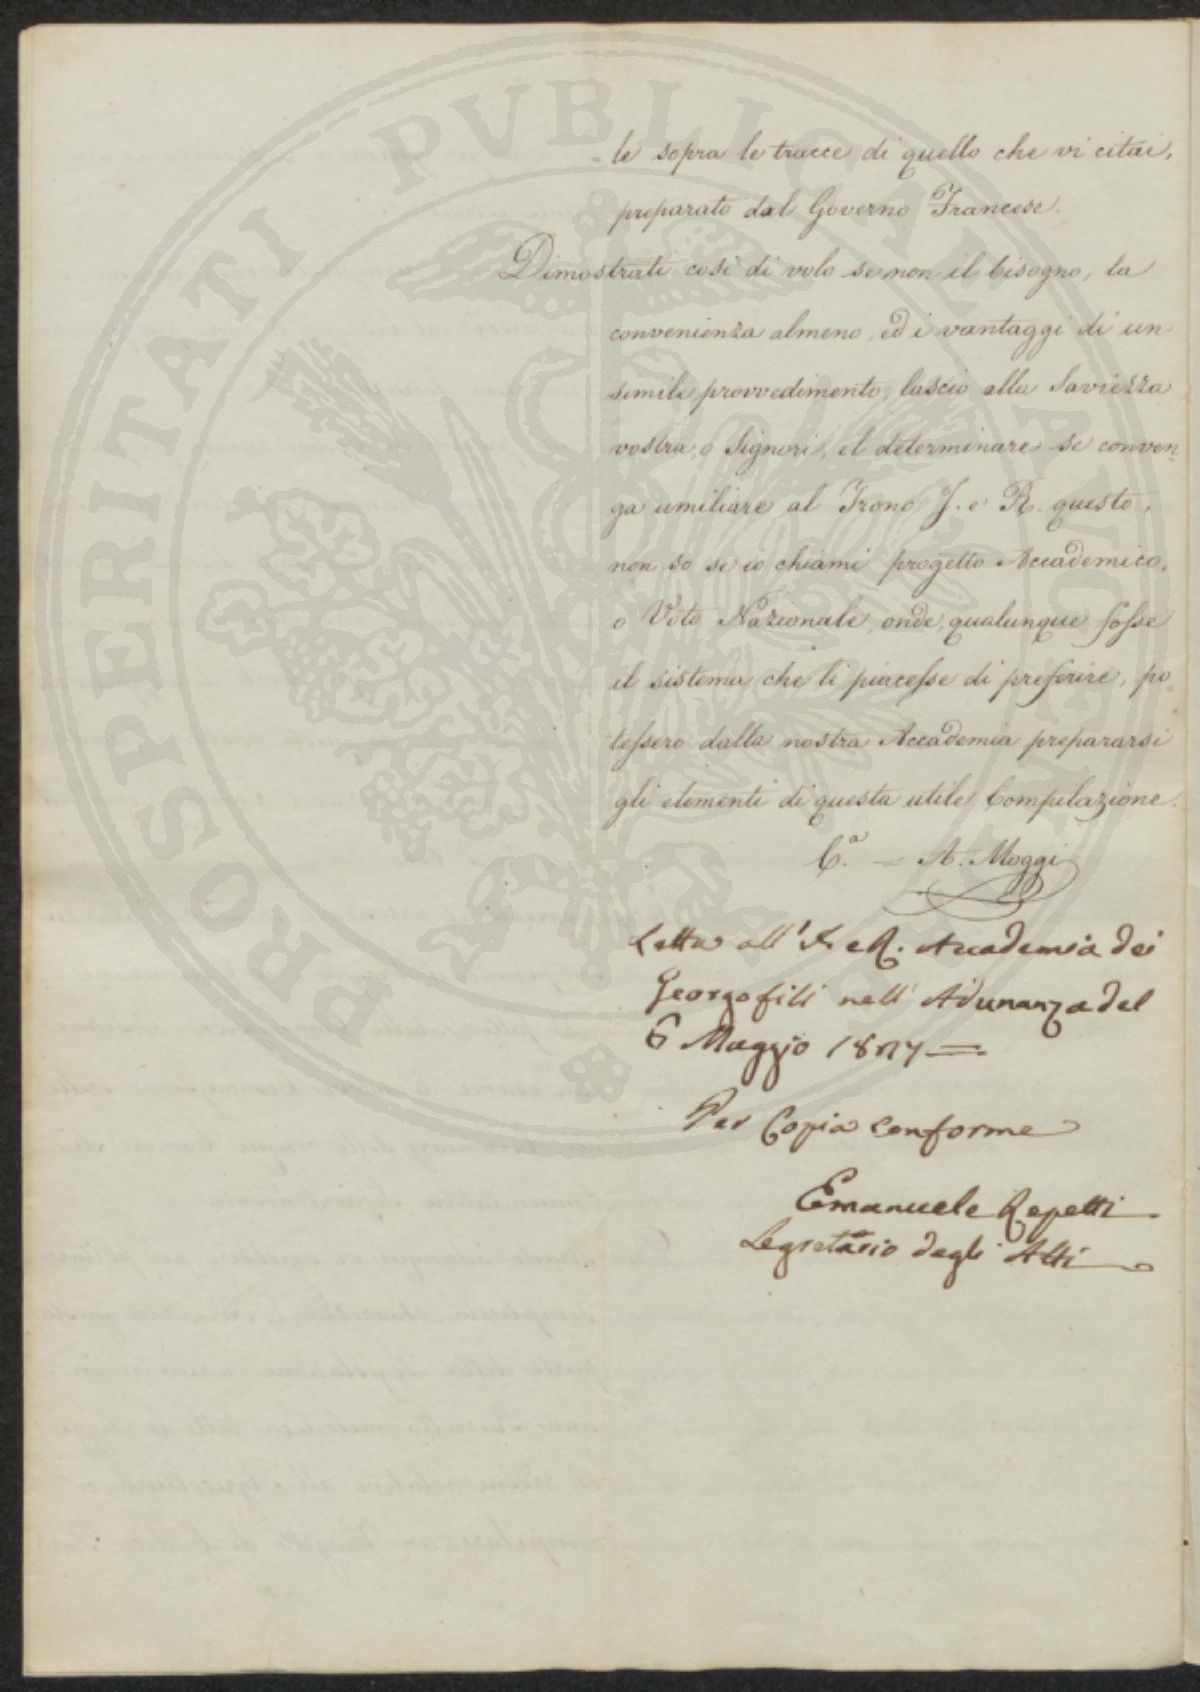 le sopra le tracce di quello che vi citai,
preparato dal Governo Francese.
Dimostrati così di volo se non il bisogno, la
convenienza almeno, ed i vantaggi di un
simile provvedimento, lascio alla Saviezza
vostra, o Signori, il determinare se conven-
ga umiliare al Trono I. e R. questo,
non so se io chiami progetto Accademico,
o Voto Nazionale, onde, qualunque fosse
il sistema che li piacesse di preferire, po
tessero dalla nostra Accademia prepararsi
gli elementi di questa utile Compilazione.
C.a = A. Moggi
Letta all' I. e R. Accademia dei
Georgofili nell' Adunanza del
6 Maggio
Per Copia conforme
Emanuele Repetti
Segretario degli Atti
PROSPERITATI PVBLICAE